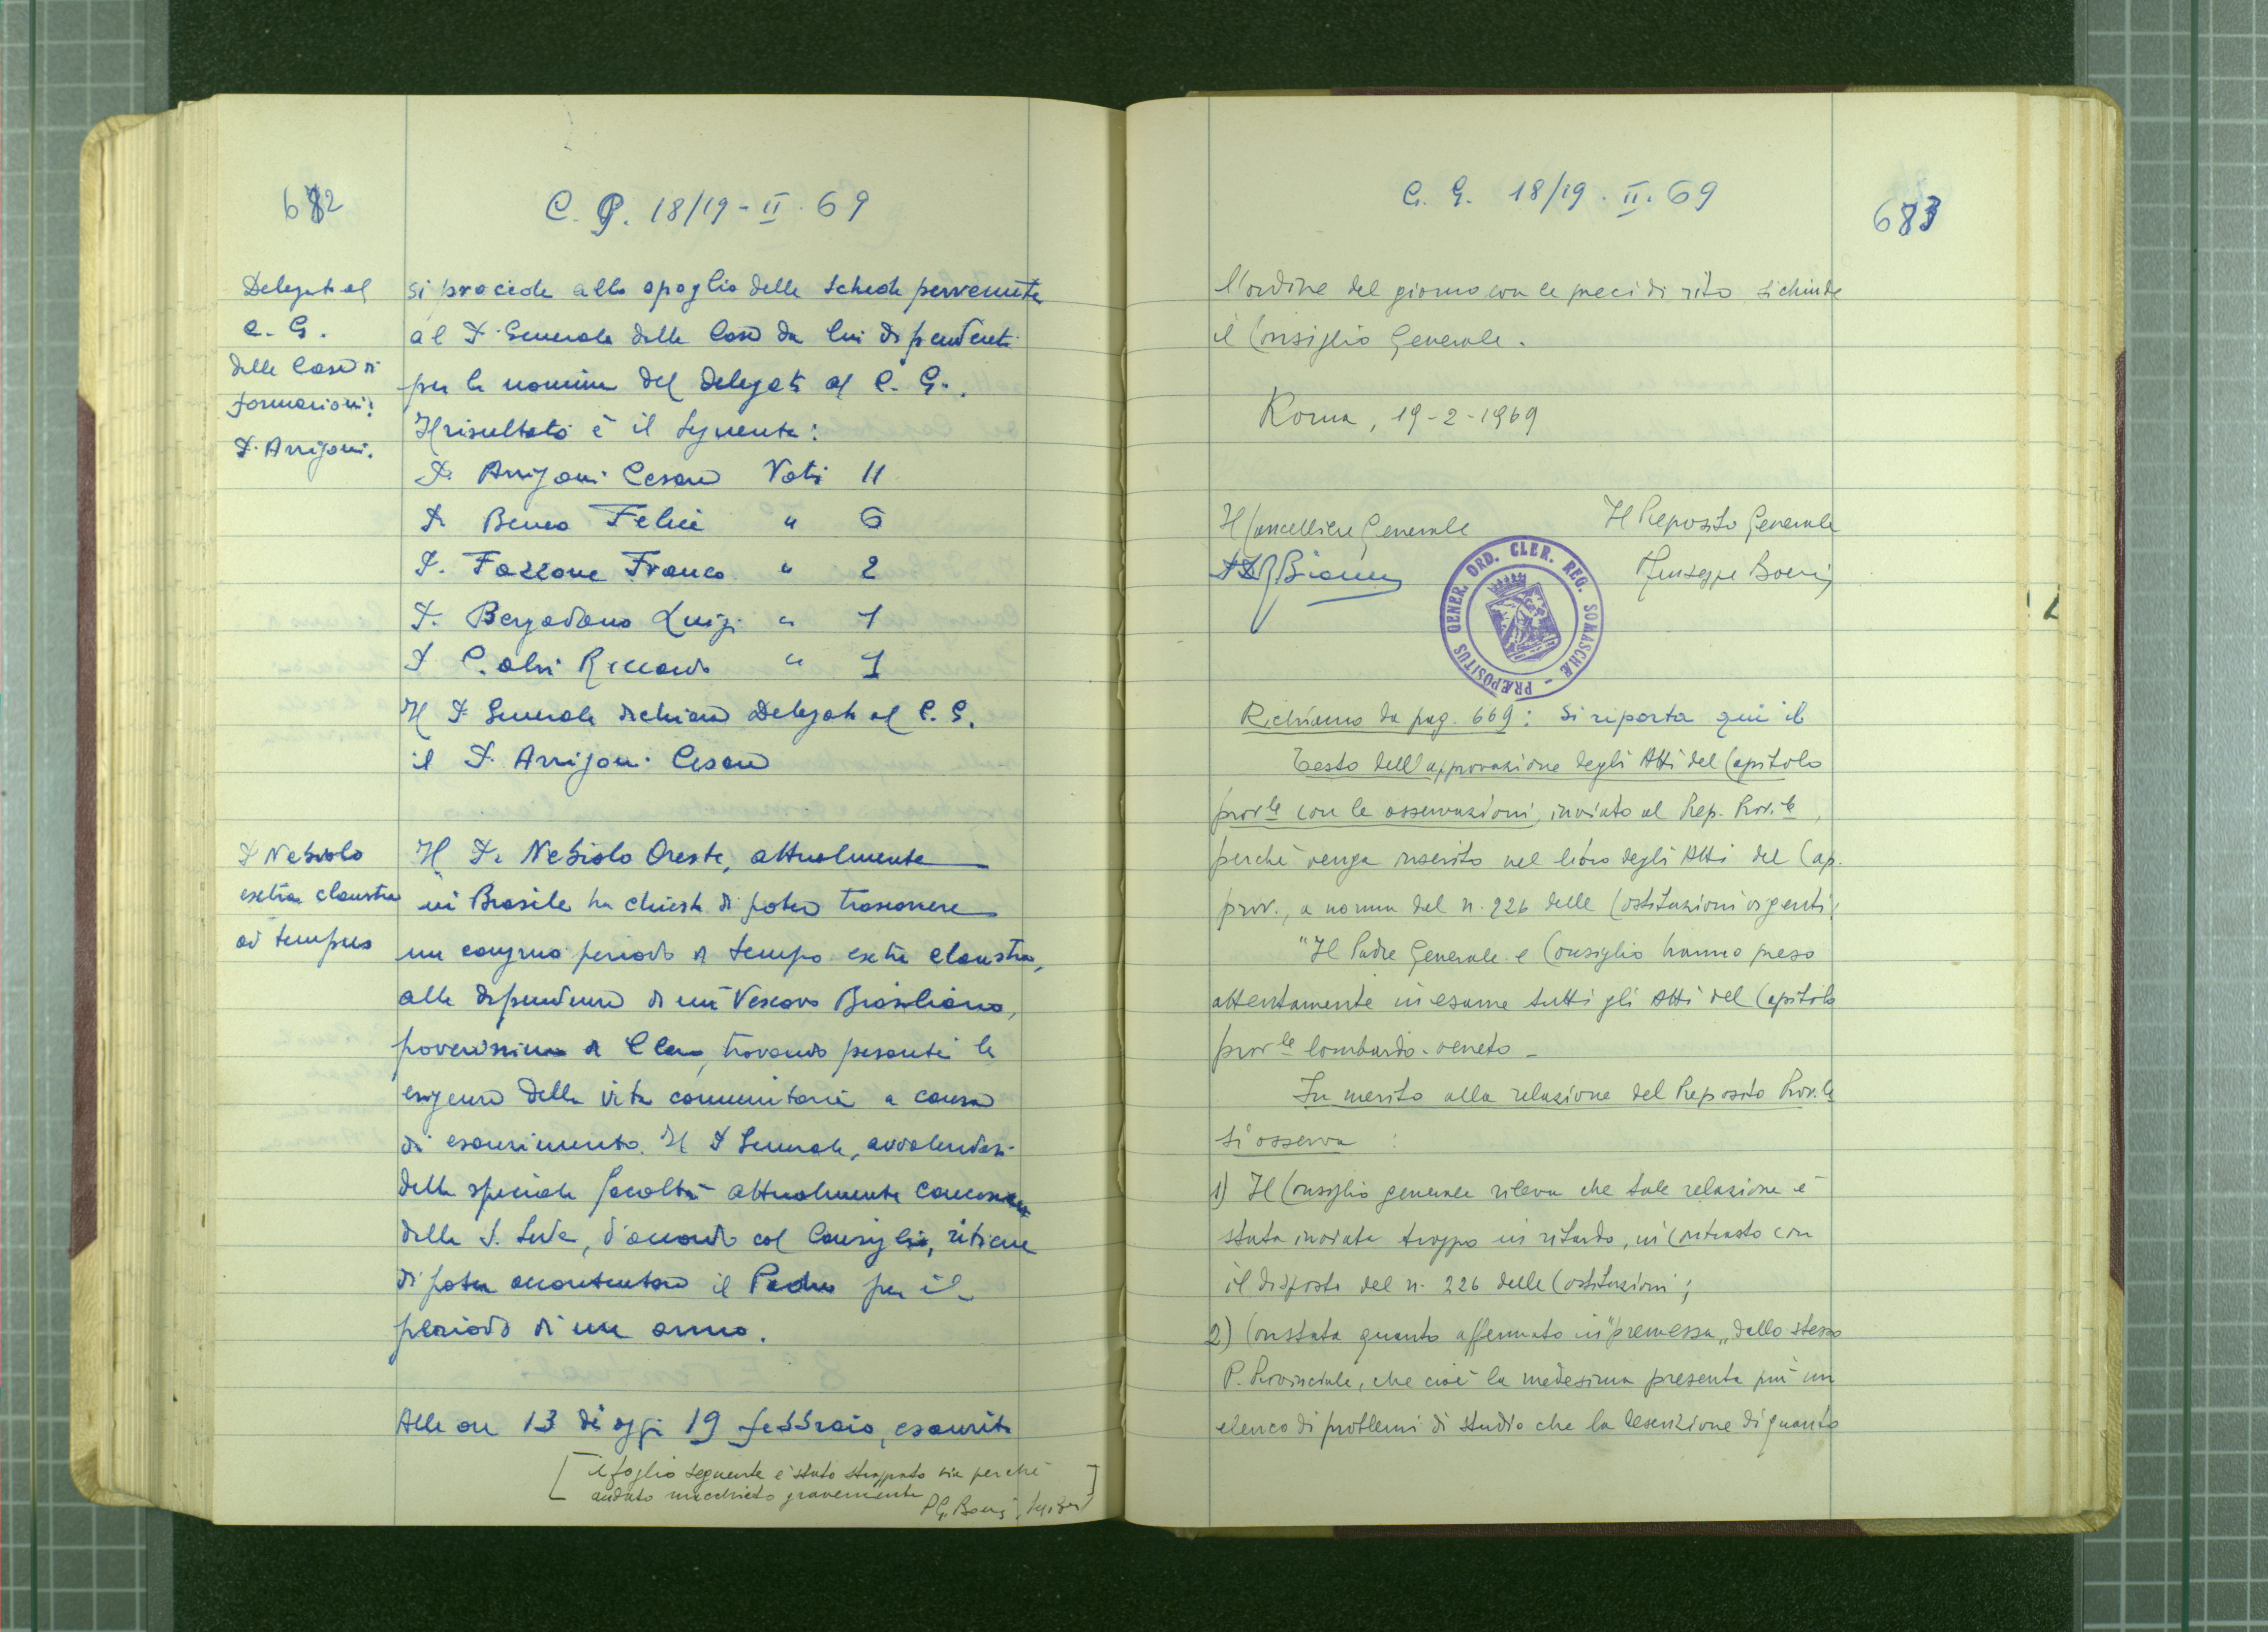 682
C. G. 18/19-II.69
Delegato al
C. G.
delle Case di
formazioni:
P. Arrigoni.
si procede allo spoglio delle schede pervenute
al P. Generale delle Case da lui dipendenti
per la nomina del delegato al C. G.
Il risultato è il seguente:
P. Arrigoni Cesare Voti 11
P. Beneo Felice " 6
P. Fazzone Franco " 2
P. Bergadano Luigi " 1
P. Riccardo " 1
Il P. Generale dichiara Delegato al C. G.
il P. Arrigoni Cesare
P. Nebiolo
extra claustra
ad tempus
Il P. Nebiolo Oreste, attualmente
in Brasile ha chiesto di poter trascorrere
un congruo periodo di tempo extra claustra,
alle dipendenze di un Vescovo Brasiliano,
poverissimo di Clero, trovando pesanti le
esigenze della vita comunitaria a causa
di esaurimento. Il P. Generale, avvalendosi
della speciale facoltà attualmente concessa
dalla S. Sede, d'accordo col Consiglio, ritiene
di poter accontentare il Padre per il
periodo di un anno.
Alle ore 13 di oggi 19 febbraio, esaurito
[il foglio seguente è stato strappato via perché
andato macchiato gravemente]
P. G. Boeris
C. G. 18/19.II.69
683
l'ordine del giorno con le preci di rito si chiude
il Consiglio Generale.
Roma, 19-2-1969
Il Cancelliere Generale Il Preposito Generale
Giuseppe Boeris
PRÆPOSITUS GENER. ORD. CLER. REG. SOMASCHÆ -
Richiamo da pag. 669: Si riporta qui il
testo dell'approvazione degli Atti del Capitolo
prov.le con le osservazioni, inviato al Prep. Prov.le,
perché venga inserito nel libro degli Atti del Cap.
prov., a norma del n. 226 delle Costituzioni vigenti:
"Il Padre Generale e Consiglio hanno preso
attentamente in esame tutti gli Atti del Capitolo
prov.le lombardo-veneto -
In merito alla relazione del Preposito Prov.le
si osserva :
1) Il Consiglio generale rileva che tale relazione è
stata inviata troppo in ritardo, in contrasto con
il disposto del n. 226 delle Costituzioni;
2) Constata quanto affermato in "premessa" dallo stesso
P. Provinciale, che cioè la medesima presenta più un
elenco di problemi di studio che la descrizione di quanto